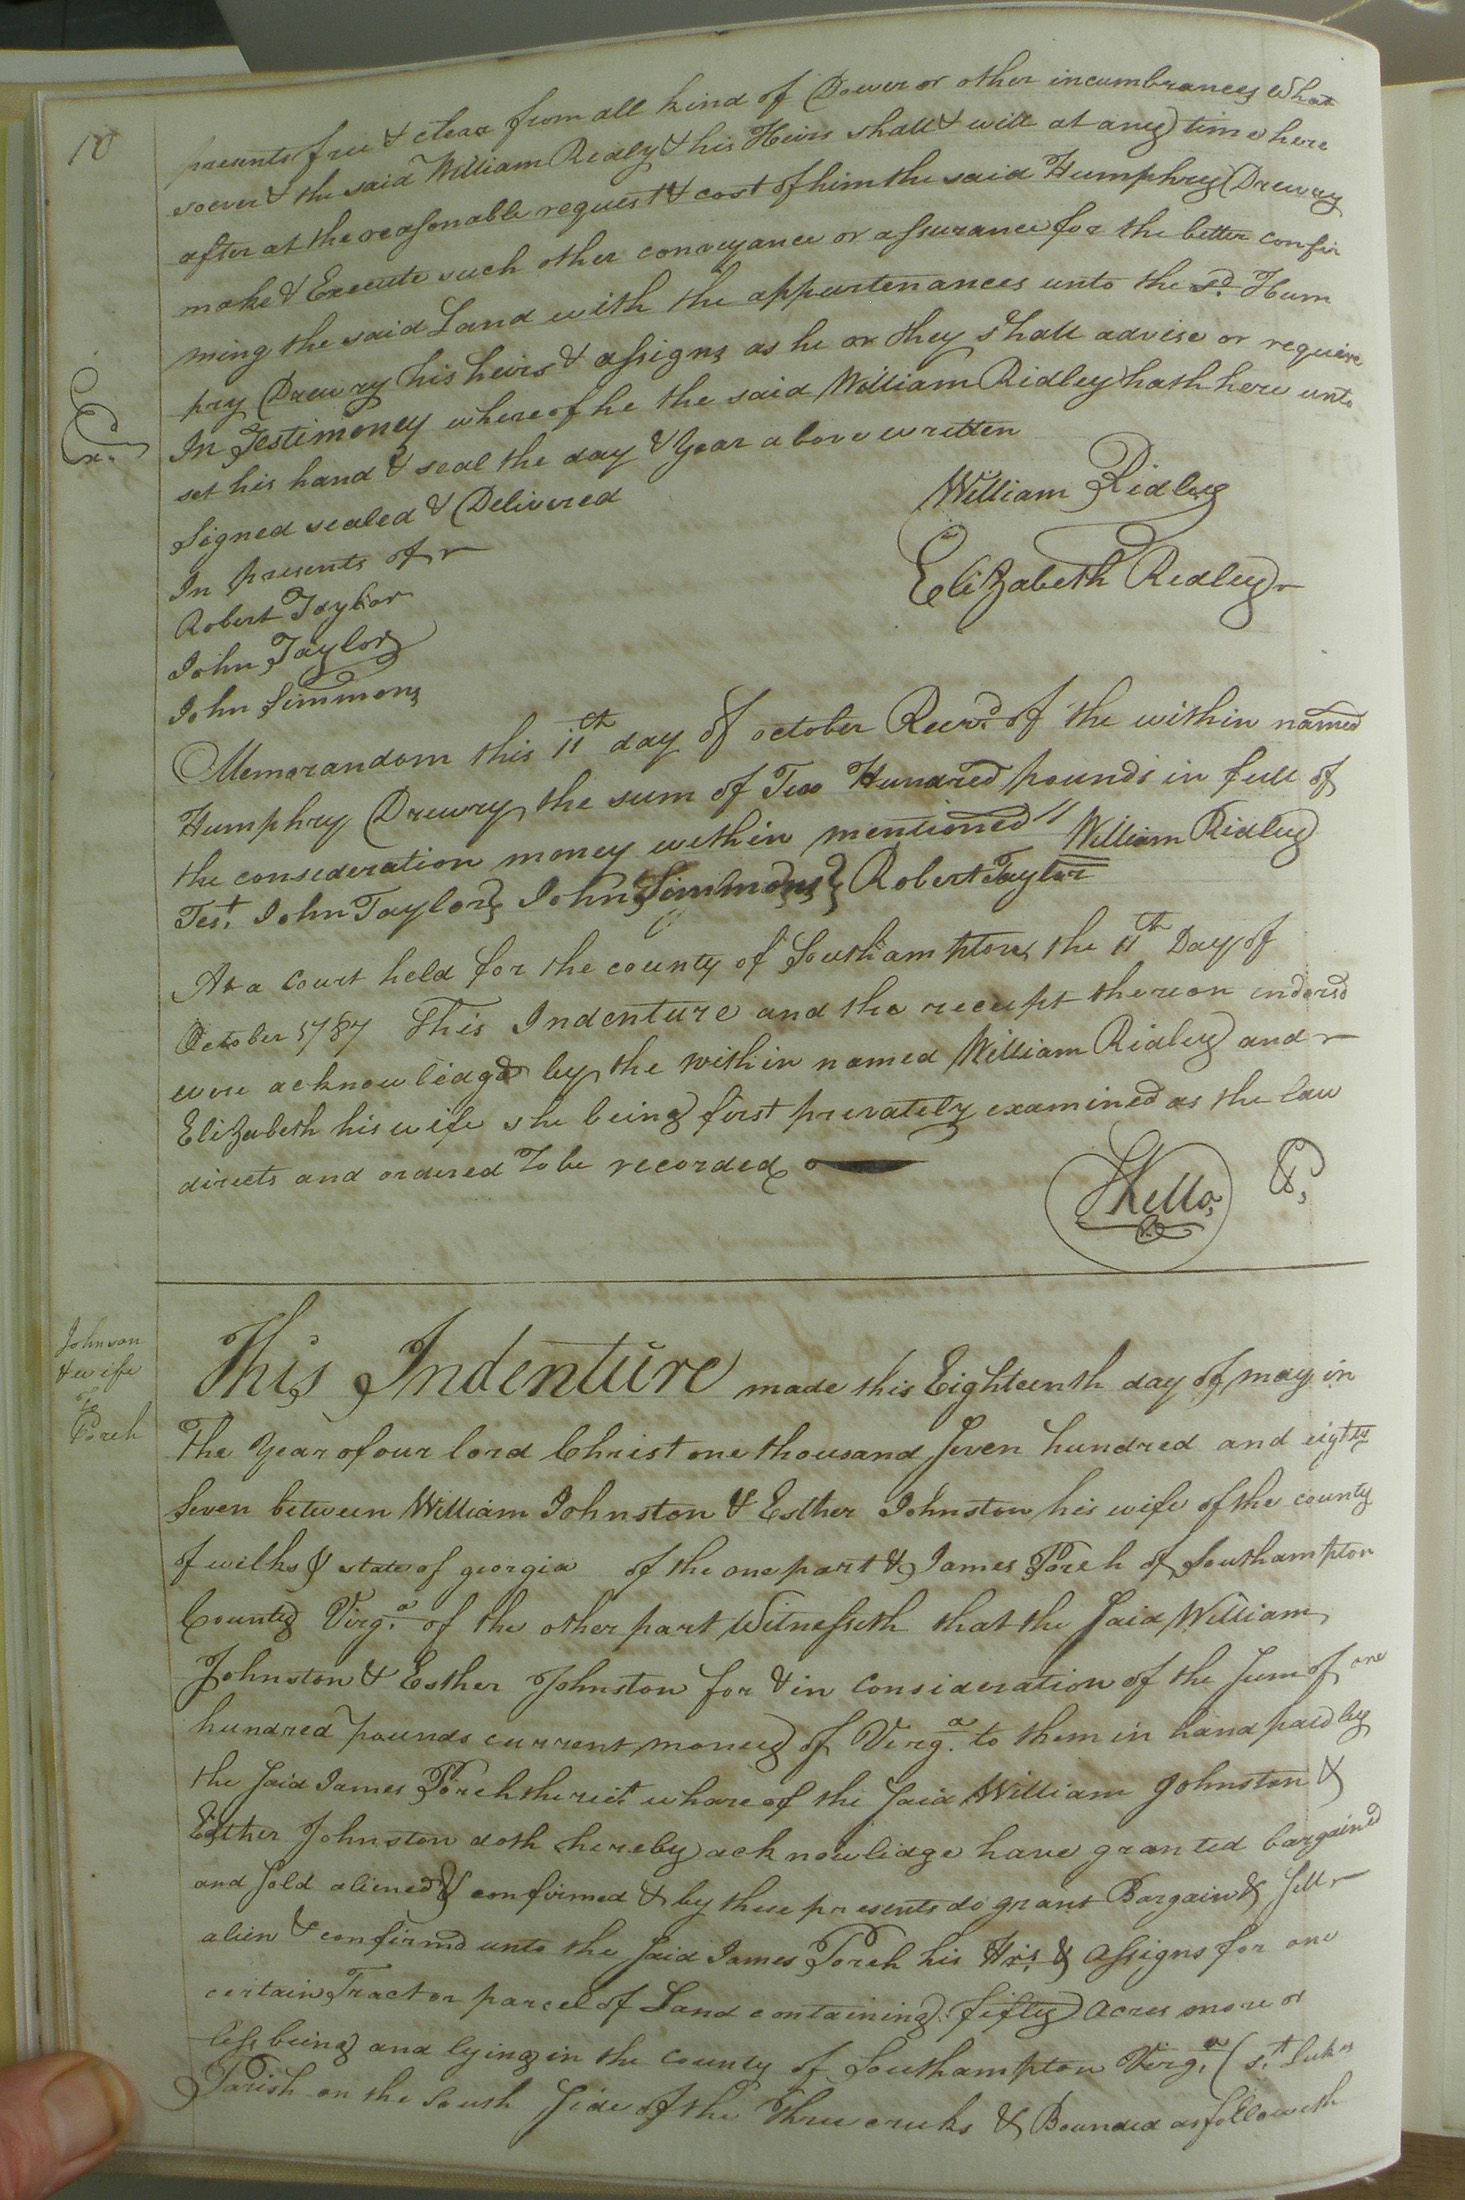 10
presents free & clear from all kind of Dower or other incumbrances what
soever & the said William Ridley & his Heirs shall & will at any time here
after at the reasonable request & cost of him the said Humphry Drewry
make & Execute such other conveyance or assurance for the better confir
ming the said Land with the appurtenances unto the sd. Hum
pry Drewry his heirs & assigns as he or they shall advise or require
In Testimoney whereof he the said William Ridley hath here unto
set his hand & seal the day & Year above written
Signed sealed & Delivered
William Ridley
In presents of
Elizabeth Ridley
Robert Taylor
John Taylor
John Simmons
Ex.
Memorandom this 11th day of october Recvd. of the within named
Humphry Drewry the sum of Two Hundred pounds in full of
the consideration money within mentioned William Ridley
Test. John Taylor John Simmons Robert Taylor
At a Court held for the county of Southampton the 11th Day of
October 1787 This Indenture and the receipt thereon indorsd
were acknowlidged by the within named William Ridley and
Elizabeth his wife she being first prevately examined as the law
directs and ordered To be recorded
Kello
Johnson
& wife
to
Porch
This Indenture made this Eighteenth day of may in
The Year of our lord Christ one thousand Seven hundred and eighty
Seven between William Johnston & Esther Johnston his wife of the county
of wilks & state of georgia of the one part & James Porch of Southampton
County Virga. of the other part Witnesseth that the Said William
Johnston & Esther Johnston for & in consideration of the Sum of one
hundred pounds current money of Virga. to them in hand paid by
the Said James Porch the rict. whare of the Said William Johnston &
Esther Johnston doth hereby acknowlidge have granted bargained
and Sold aliened & confirmed & by these presents do grant Bargain & Sell
alien & confirmd unto the Said James Porch his Hrs. & Assigns for one
certain Tract or parcel of Land containing fifty Acres more or
less being and lying in the county of Southampton Virga. (St. Lukes
Parish on the South Side of the Three creeks & Bounded as followeth